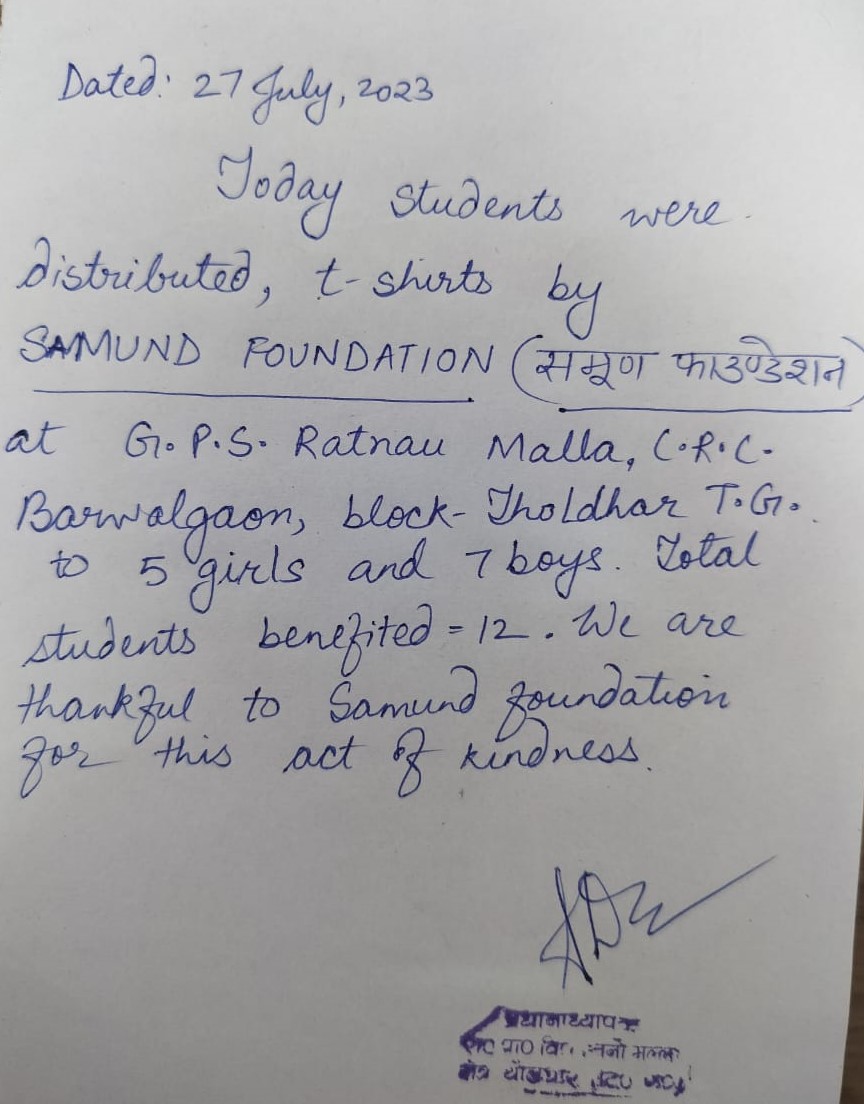 Dated: 27 July, 2023
Today students were
distributed, t-shirts by
SAMUND FOUNDATION (समूण फाउण्डेशन)
at G.P.S. Ratnau Malla, C.R.C.
Barwalgaon, block- Tholdhar T.G.
to 5 girls and 7 boys. Total
students benefited = 12. We are
thankful to Samund foundation
for this act of kindness.
प्रधानाध्यापक
रा० प्रा० वि० मल्ला